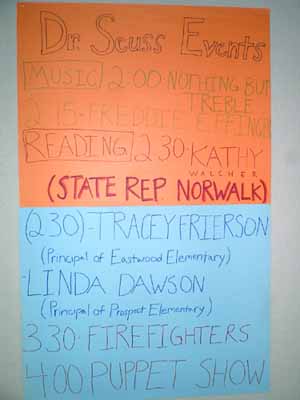 Dr. Seuss Events
MUSIC 2:00 NOTHING BUT
TREBLE
2 15-FREDDIE EFFINGER
READING 2 30-KATHY
WALCHER
(STATE REP NORWALK)
(2 30)-TRACEY FRIERSON
(Principal of Eastwood Elementary)
-LINDA DAWSON
(Principal of Prospect Elementary)
3 30-FIREFIGHTERS
4 00 PUPPET SHOW